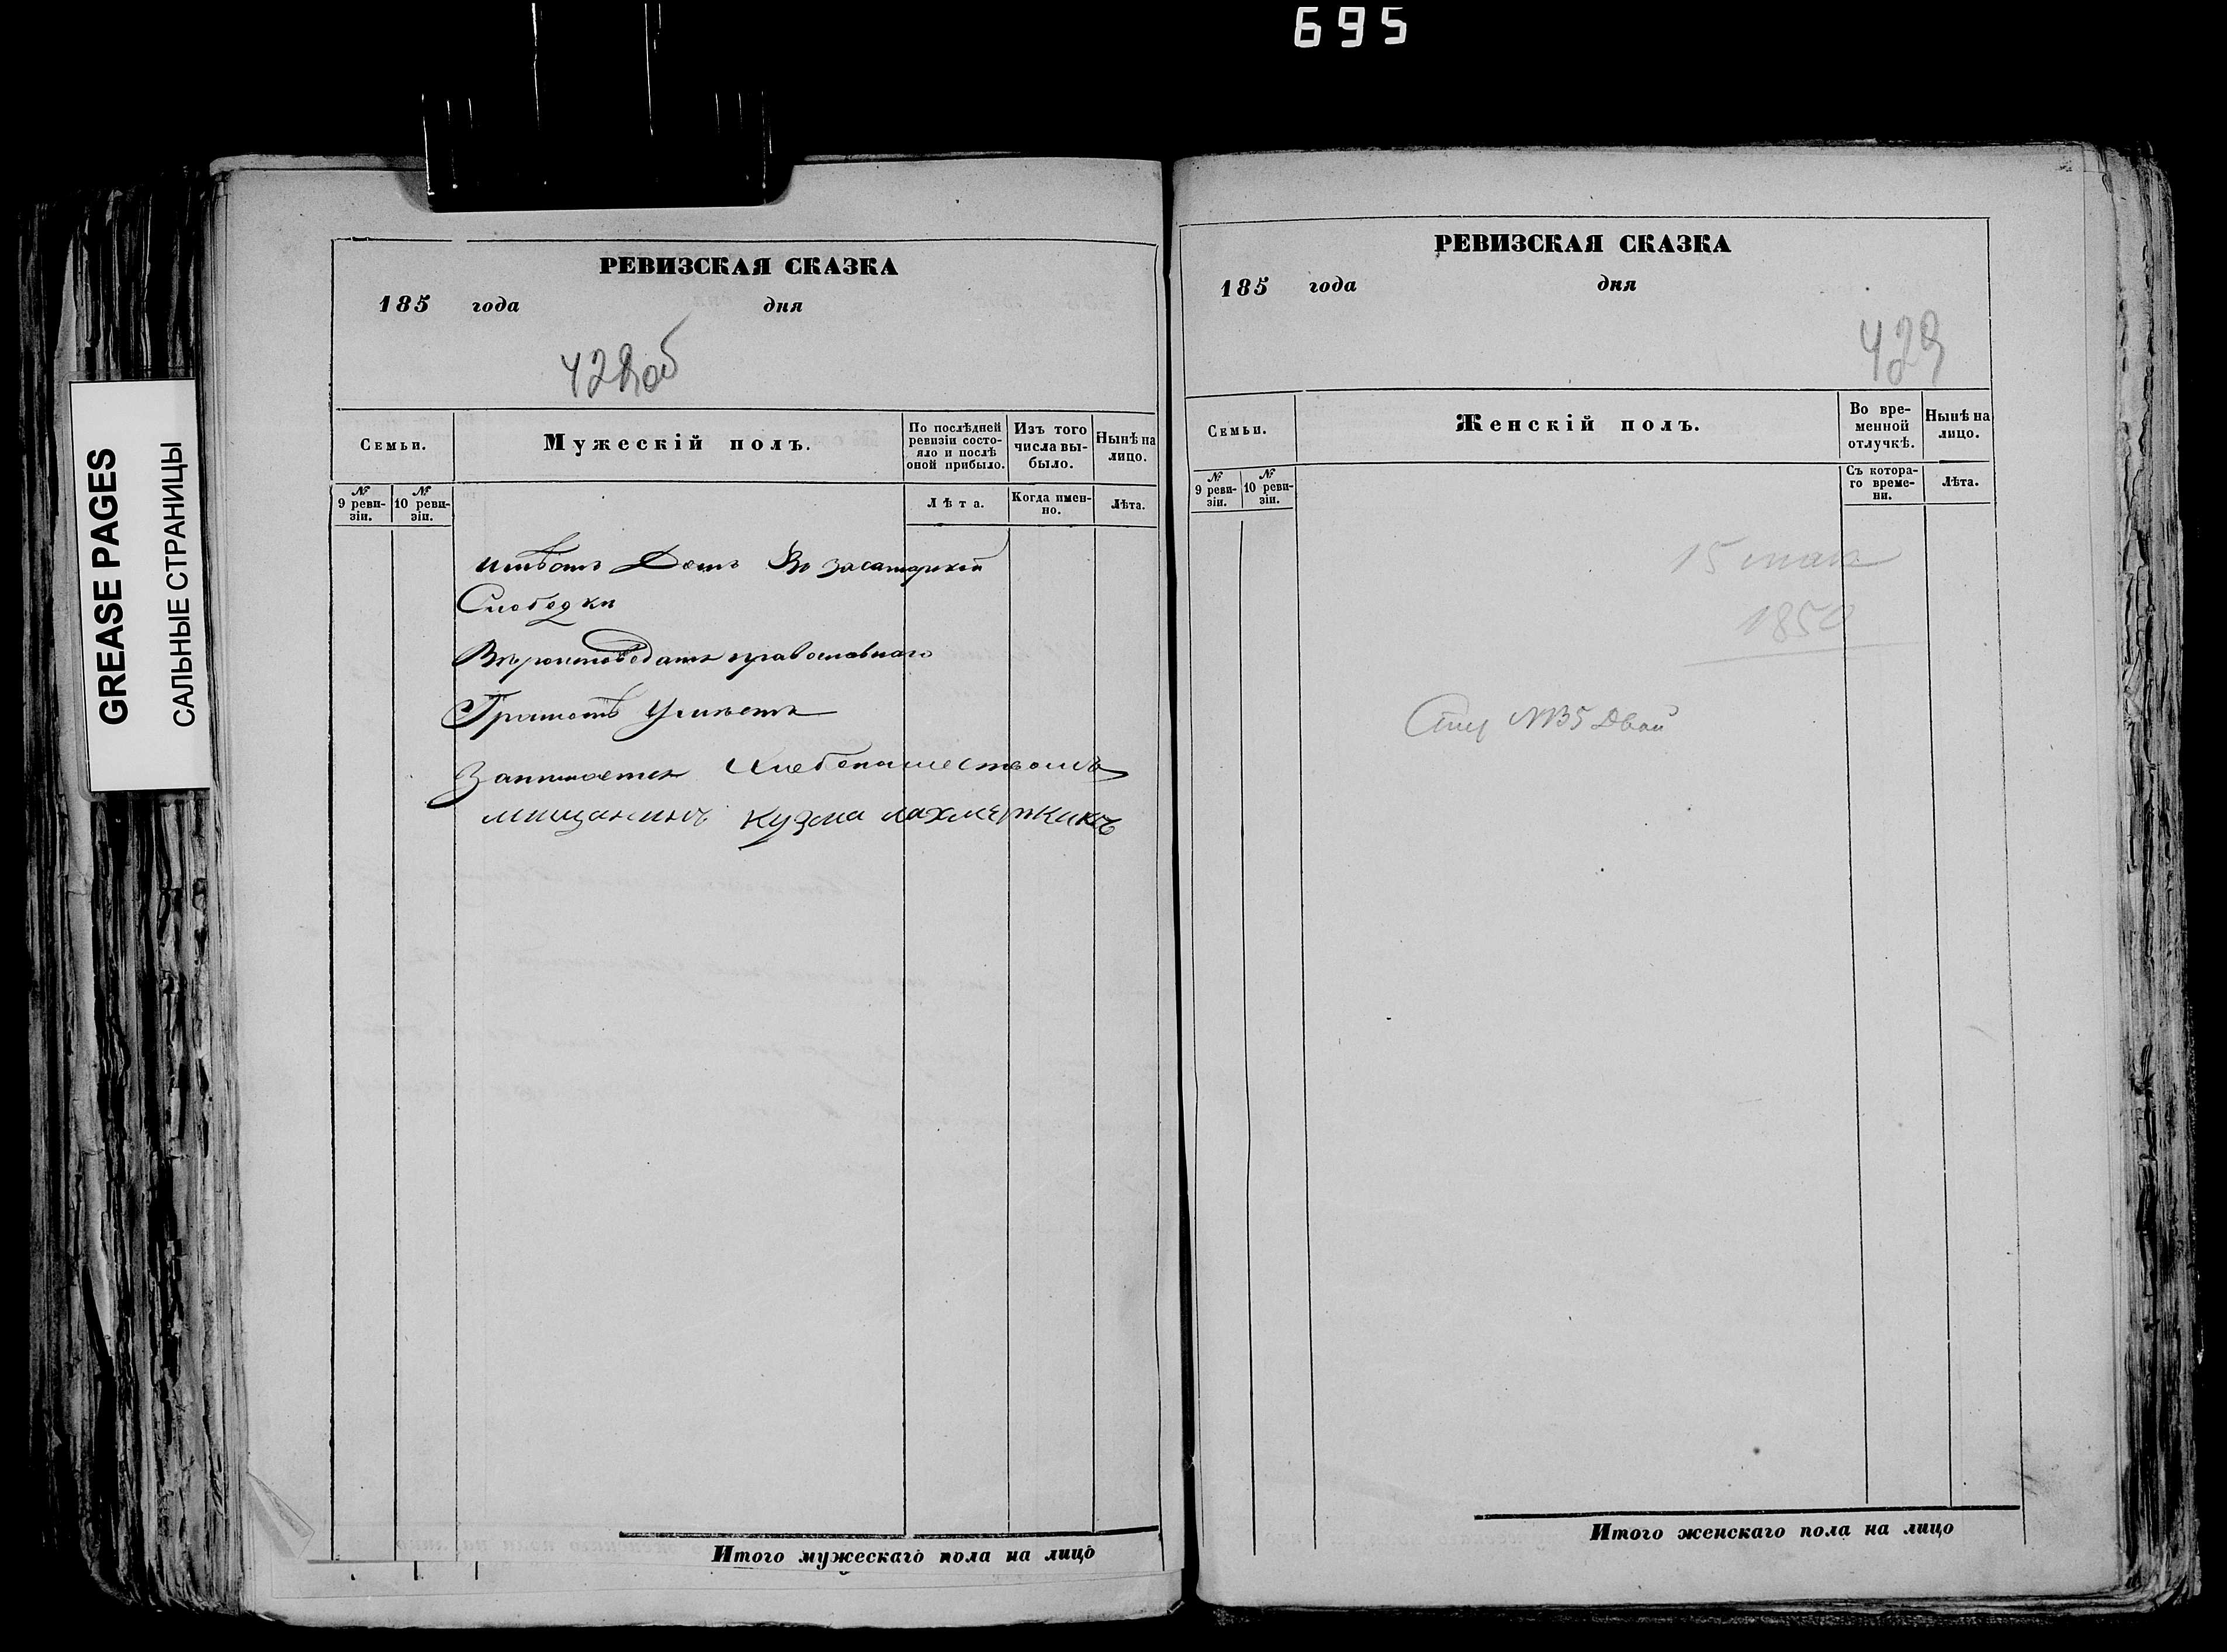 695
GREASE PAGES
САЛЬНЫЕ СТРАНИЦЫ
РЕВИЗСКАЯ СКАЗКА
185 года дня
428 об
Семьи.
Мужескій полъ.
По послѣдней ревизіи состо-
яло и послѣ
оной прибыло.
Изъ того
числа вы-
было.
Нынѣ на
лицо.
№
9 реви-
зіи.
№
10 реви-
зіи.
Лѣта.
Когда имен-
но.
Лѣта.
Имѣетъ Домъ Во засамарской
Слободки
Вѣроисповеданія православнаго
Грамотѣ Умѣетъ
Занимаетца Хлебопашествомъ
мищанинъ кузма лахметкинъ
Итого мужескаго пола на лицо
РЕВИЗСКАЯ СКАЗКА
185 года дня
429
Семьи.
Женскій полъ.
Во вре-
менной
отлучкѣ.
Нынѣ на
лицо.
№
9 реви-
зіи.
№
10 реви-
зіи.
Съ котора-
го време-
ни.
Лѣта.
15 мая
1850
Итого женскаго пола на лицо